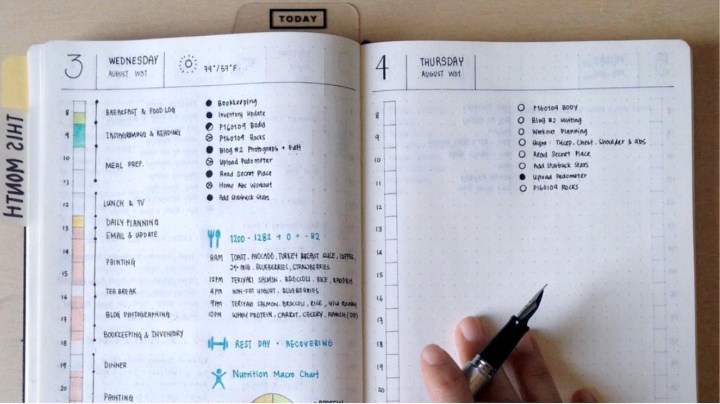 TODAY
THIS MONTH
3 WEDNESDAY
AUGUST WK1
79°/59°F
8
BREAKFAST & FOOD LOG
9
INSTAGRAMING & READING
10
MEAL PREP.
11
12
LUNCH & TV
13
DAILY PLANNING
EMAIL & UPDATE
14
PRINTING
15
TEA BREAK
16
17
BLOG PHOTOGRAPHING
18
BOOKKEEPING & INVENTORY
19
DINNER
20
PRINTING
Bookkeeping
Inventory Update
P160104 Body
P160104 Rocks
Blog #2 Photograph + Edit
Upload Pedometer
Read Secret Place
Home Abc Workout
Add Starbuck Stars
1200 - 1282 + 0 = -82
8AM TOAST, AVOCADO, TURKEY BREAST SLICE, COFFEE,
BLUEBERRIES, STRAWBERRIES
12PM TERIYAKI SALMON, BROCCOLI, RICE,
4PM NON-FAT YOGURT, BLUEBERRIES
7PM TERIYAKI SALMON, BROCCOLI, RICE,
10PM WHEY PROTEIN, CARROT, CELERY,
REST DAY - RECOVERING
Nutrition Macro Chart
PROTEIN
4 THURSDAY
AUGUST WK1
8
9
10
11
12
13
14
15
16
17
18
19
20
P160104 BODY
Blog #2 Writing
Workout Planning
Gym: Tricep, Chest, Shoulder & Abs
Read Secret Place
Add Starbuck Stars
Upload Pedometer
P160104 ROCKS